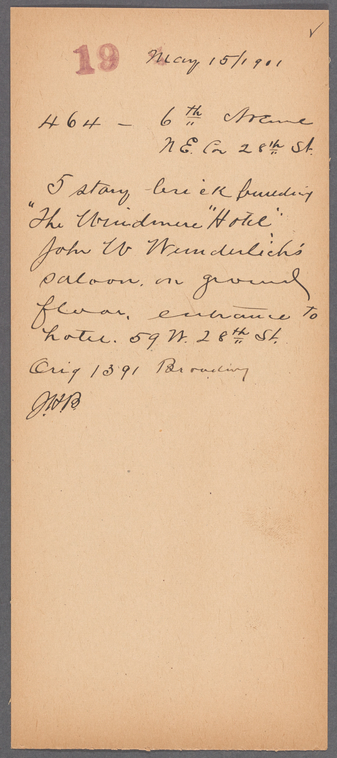 ✓
19 May 15/1901
464 – 6th Avenue
N.E. Cor 28th St.
5 story brick building
"The Windmere" Hotel"
John W Wunderlich's
saloon, on ground
floor, entrance to
hotel. 59 W. 28th St.
Orig 1391 Broadway
JHB